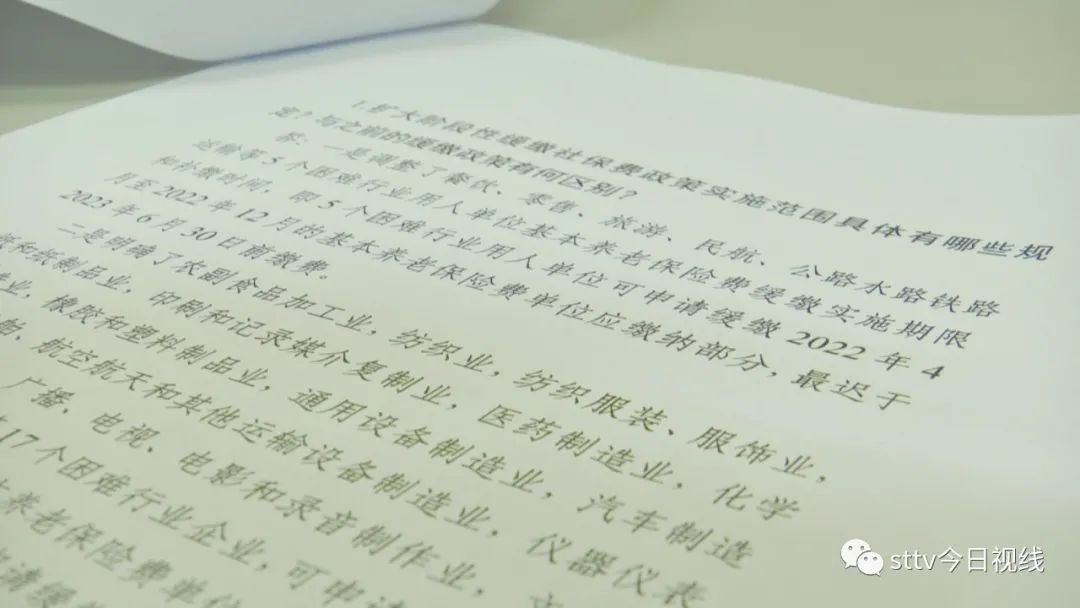 1.扩大阶段性缓缴社保费政策实施范围具体有哪些规
定？与之前的缓缴政策有何区别？
答：一是调整了餐饮、零售、旅游、民航、公路水路铁路
运输等5个困难行业用人单位基本养老保险费缓缴实施期限
和补缴时间，即5个困难行业用人单位可申请缓缴2022年4
月至2022年12月的基本养老保险费单位应缴纳部分，最迟于
2023年6月30日前缴费。
二是明确了农副食品加工业，纺织业，纺织服装、服饰业，
纸和纸制品业，印刷和记录媒介复制业，医药制造业，化学
造业，橡胶和塑料制品业，通用设备制造业，汽车制造
航空航天和其他运输设备制造业，仪器仪表
广播、电视、电影和录音制作业，
17个困难行业企业，可申请
养老保险费单位
请缓
sttv今日视线